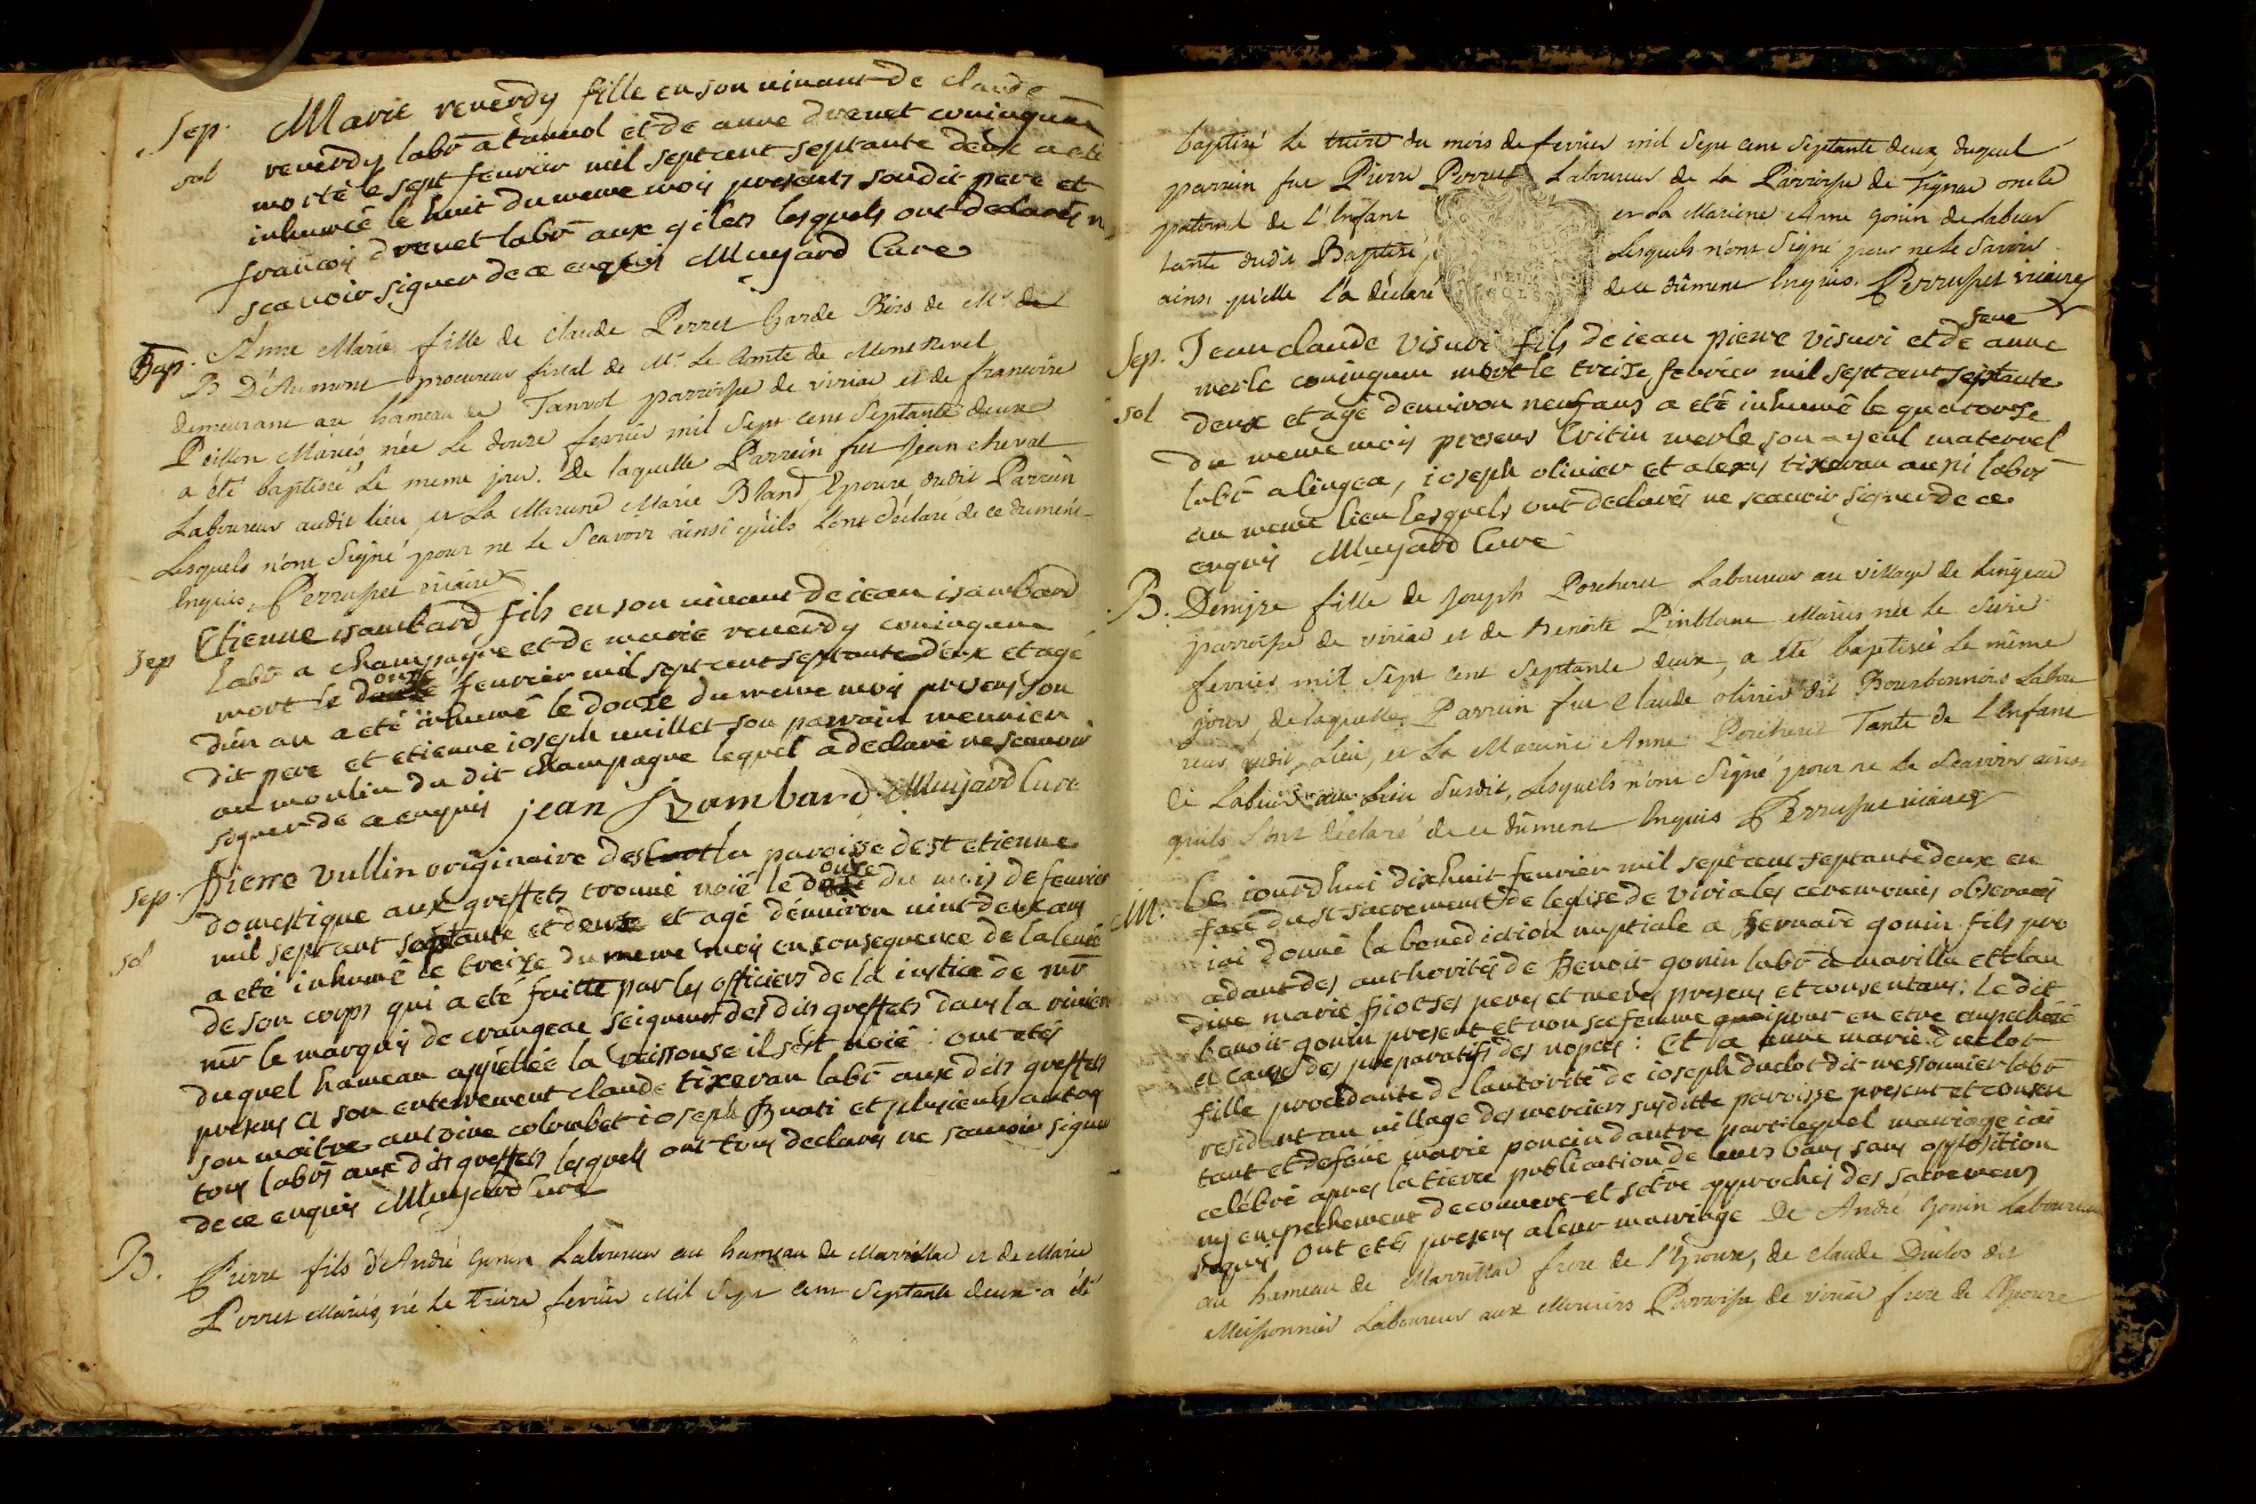 Sep. Marie reverdy fille en son vivant de claude
sol reverdy labr a tanvol et de anne drevet coniugum
morte le sept fevrier mil sept cent septante deux a eté
inhumée le huit du meme mois presents son dit pere et
francois drevet labr aux gilets lesquels ont declarés n
scavoir signer de ce enquis Muyard Cure
Bap. Anne Marie fille de Claude Perret Garde Bois de Mr de
B D'Aumont procureur fiscal de Mr Le Comte de Montrevel
demeurant au hameau de Tanvol parroisse de viriac et de francoise
Peillon Mariés née le douze fevrier mil Sept cent Septante deux
a été baptisée le meme jour. De laquelle Parrein fut Jean cheval
Laboureur audit lieu, et La Mareine Marie Bland Epouse dudit Parrein
Lesquels n'ont Signé pour ne le Scavoir ainsi qu'ils l'ont déclaré de ce dument
Enquis, Perruset vicaire
Sep Etienne isambard fils en son vivant de iean isambard
labr a champagne et de marie reverdy coniugum
onze
mort le fevrier mil sept cent septante deux et agé
d'un an a eté inhumé le douze du meme mois presens son
dit pere et etienne ioseph millet son parrain meunier
au moulin du dit champagne lequel a declaré ne scavoir
signer de ce enquis jean Isambard Muyard Cure
Sep. Pierre Vullin originaire de la paroisse de st etienne
onze
domestique aux greffets trouvé noié le du mois de fevrier
sol mil sept cent septante et deux et agé d'environ vint deux ans
a eté inhumé le treize du meme mois en consequence de la levée
de son corps qui a eté faitte par les officiers de la iustice de mr
mr le marquis de crangeac seigneur des dits greffets dans la riviere
duquel hameau appellée la reissouse il s'est noié : ont etés
presens a son enterrement claude tixeran labr aux dits greffets
son maitre antoine colombet ioseph Buati et plusieurs autres
tous labrs aux dits greffets lesquels ont tous declarés ne scavoir signer
de ce enquis Muyard Cure
B. Pierre fils d'André Gonin Laboureur au hameau de Marvillac et de Marie
Perret Mariés, né le treize fevrier Mil Sept cent Septante deux a été
baptisé le treize du mois de fevrier mil Sept cent Septante deux duquel
parrain fut Pierre Perret Laboureur de la Parroisse de oncle
paternel de L'Enfant et La Mareine Anne Gonin de labeur
tante dudit Baptisé, Lesquels n'ont Signé pour ne le Scavoir
ainsi qu'elle l'a déclaré de ce dûment Enquis. Perruset vicaire
feue
Sep. Jean claude visuvi fils de iean pierre visuvi et de anne
merle coniugum mort le treize fevrier mil sept cent septante
sol deux et agé denviron neuf ans a eté inhumé le quatorse
du meme mois presens merle son ayeul maternel
labr a lingea, ioseph olivier et alexis tixeran aussi labrs
au meme lieu lesquels ont declarés ne scavoir signer de ce
enquis Muyard Cure
B. Denise fille de Joseph Porcheret Laboureur au village de Lingeat
parroisse de viriac et de Benoite Pinblanc Mariés née le Seize
fevrier mil Sept cent Septante deux, a été baptisée le même
jour, de laquelle Parrein fut Claude olivier dit Bourbonnois Labou
reur audit Lieu, et La Mareine Anne Porcheret Tante de L'Enfant
de Labeur au lieu Susdit, Lesquels n'ont Signé pour ne le Scavoir ainsi
qu'ils l'ont déclaré de ce dûment Enquis Perruset vicaire
M. Ce iourdhui dixhuit fevrier mil sept cent septante deux en
face du st sacrement de leglise de viria les ceremonies observées
iai donné la benediction nuptiale a Bernard gonin fils pro
cedant des authorités de Benoit gonin labr a marilla et clau
dine marie piot ses peres et meres presens et consentans : Le dit
benoit gonin present et non sa femme pour en etre empechée
a cause des preparatifs des nopces : Et a anne marie duclot
fille procedante de lautorité de ioseph duclot dit messonnier labr
residant au village des merciers susditte paroisse present et consen
tant et defeüe marie poncin dautre part lequel mariage iai
celébré apres la tierce publication de leurs bans sans opposition
ny empechement decouvert et setre approchés des sacremens
requis Ont etés presens a leur mariage De André Gonin Laboureur
au hameau de Marvillac frere de l'Epoux, de Claude Duclos dit
Meissonnier Laboureur aux Merciers Parroisse de viriac frere de l'Epouse